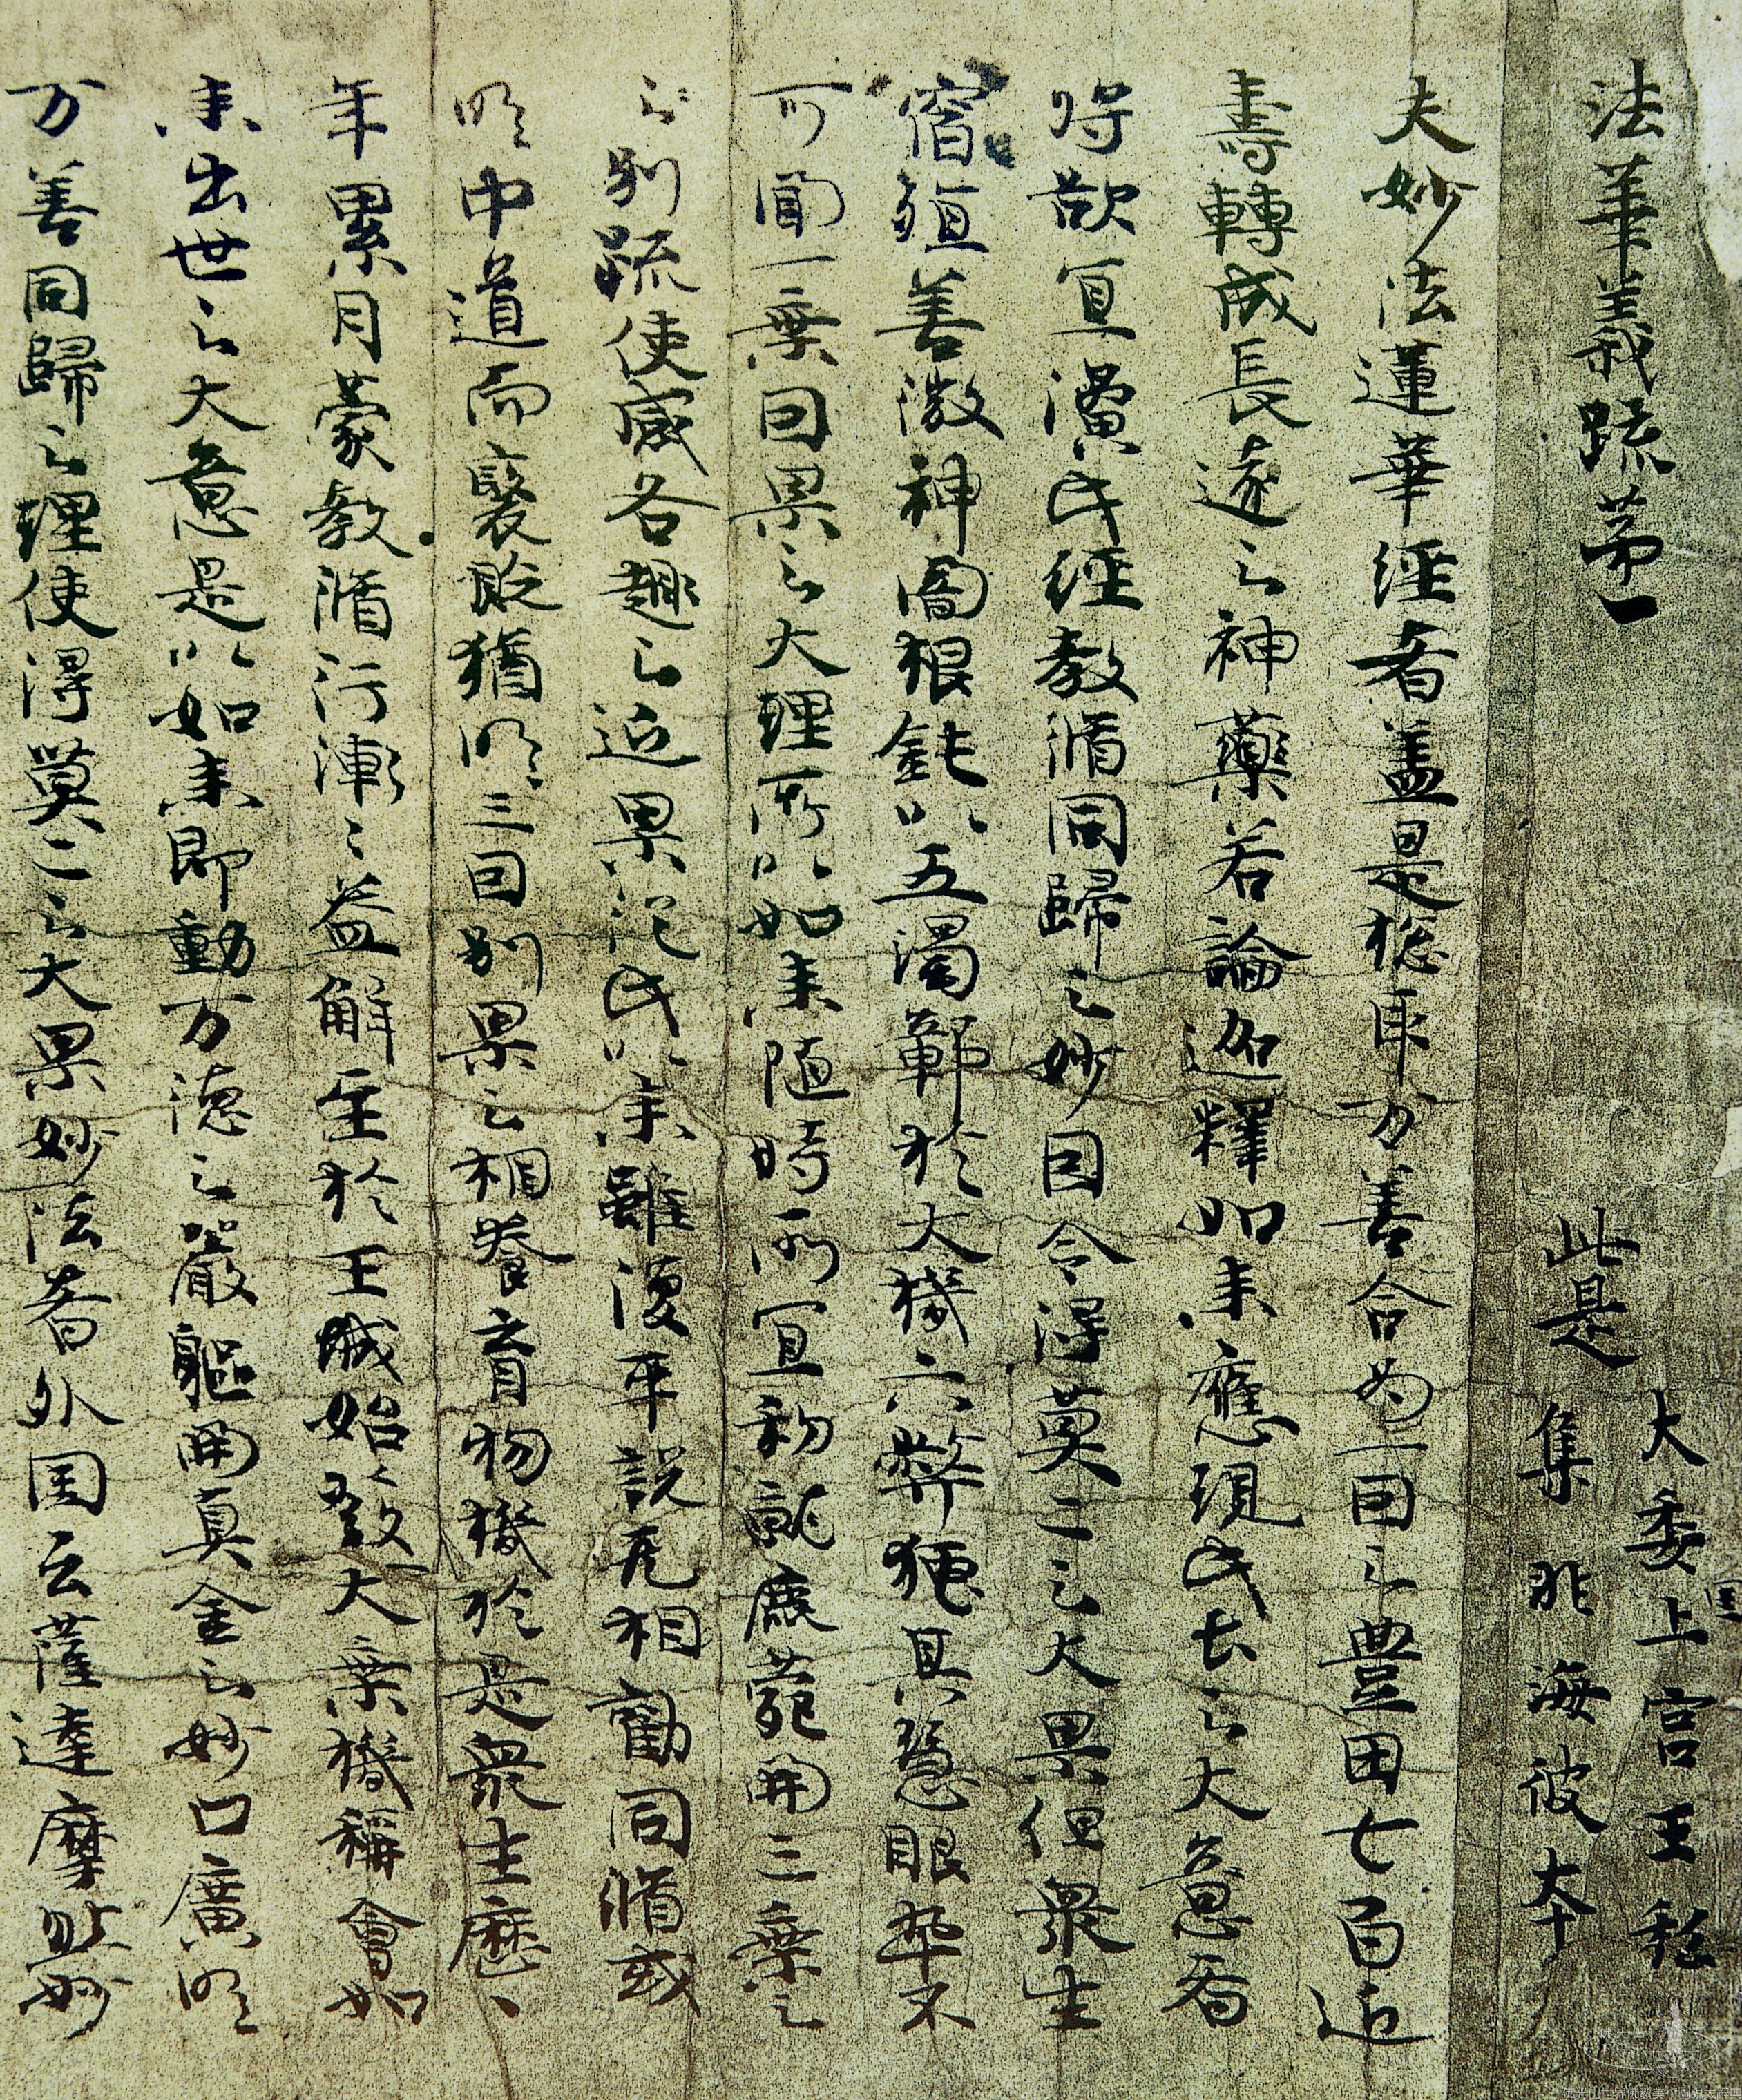 法華義疏第一
此是
大委国上宮王私
集非海彼本
夫妙法蓮華経者盖是惣取万善合為一因之豊田七百近
壽轉成長遠之神藥若論迦釋如来應現此土之大意者
将欲宜演此経教脩同歸之妙因令得莫二之大果但衆生
宿殖善微神闇根鈍以五濁鄣於大機六弊掩其慧眼卒不
可聞一乗因果之大理所以如来随時所宜初就鹿菀開三乗之
之別䟽使感各趣之近果従此以来雖復平説无相勸同脩或
明中道而褒貶猶明三因別果之相養育物機於是衆生歴、
年累月蒙教脩行漸々益解至於王城始發大乗機稱會如
来出世之大意是以如来即動万徳之嚴軀開真金之妙口廣明
万善同歸之理使得莫二之大果妙法者外国云薩達摩然妙